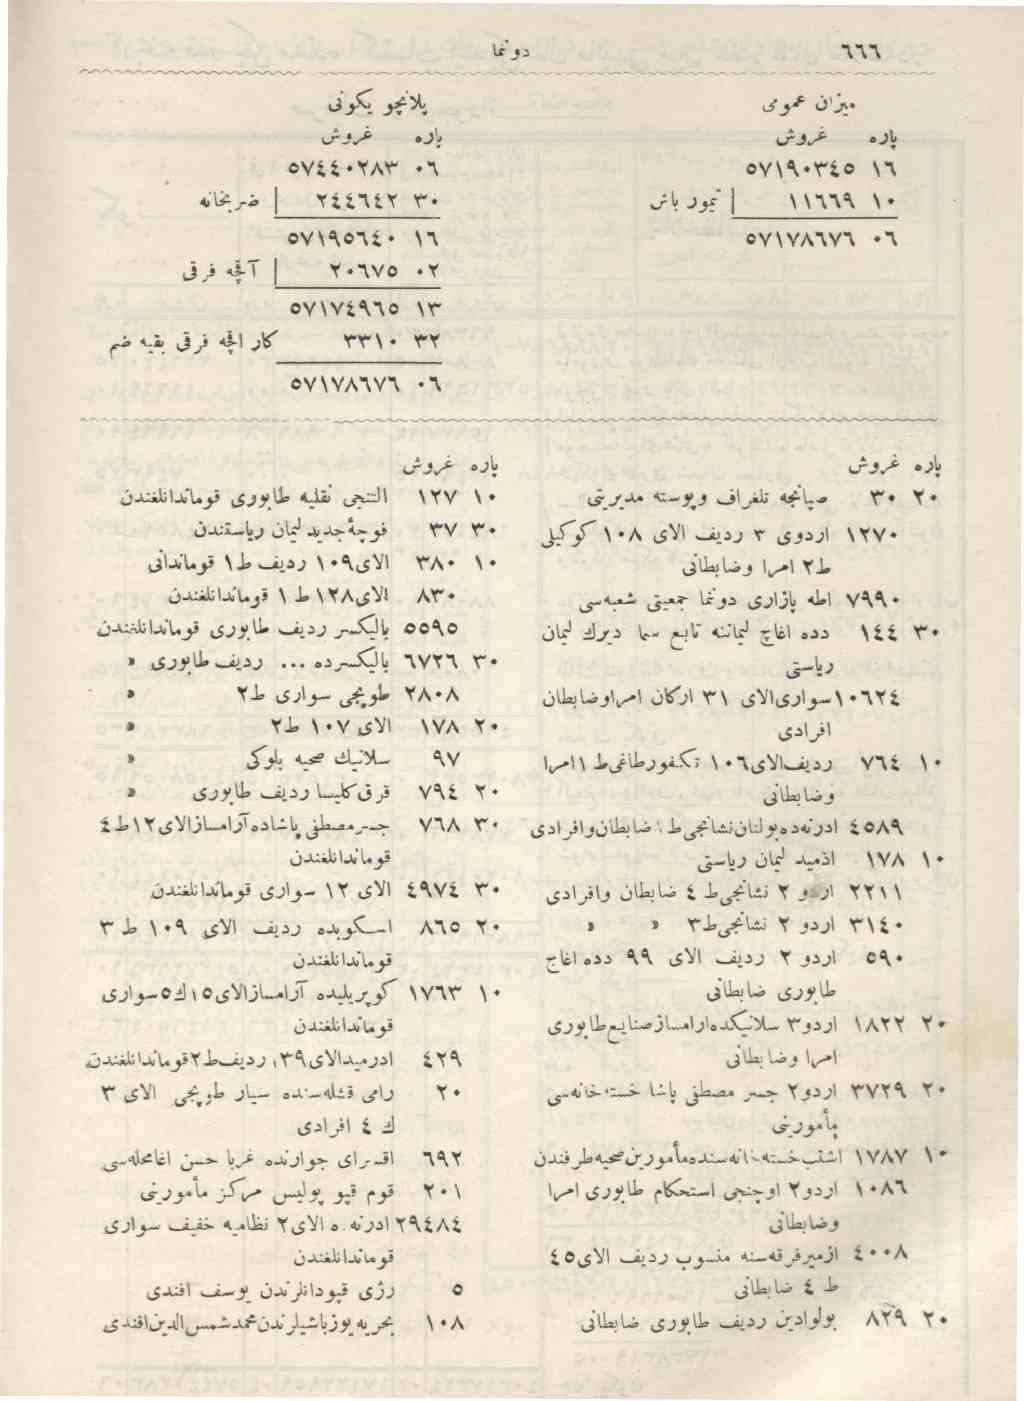 ٦٦٦
دونما
ميزان عمومى
پاره غروش
١٦ ٥٧١٩٠٣٤٥
١٠ ١١٦٦٩ تيمور باش
٠٦ ٥٧١٧٨٦٧٦
پلانچو يكونى
پاره غروش
٠٦ ٥٧٤٤٠٢٨٣
٣٠ ٢٤٤٦٤٢ ضربخانه
١٦ ٥٧١٩٥٦٤٠
٠٢ ٢٠٦٧٥ آقچه فرقى
١٣ ٥٧١٧٤٩٦٥
٣٢ ٣٣١٠ كار اقچه فرقى بقيه ضم
٠٦ ٥٧١٧٨٦٧٦
پاره غروش
٢٠ ٣٠ صپانجه تلغراف وپوسته مديريتى
١٢٧٠ اردوى ٣ رديف الاى ١٠٨ كوكيلى
ط٢ امرا وضابطانى
٧٩٩٠ اطه پازارى دونما جمعيتى شعبه‌سى
٣٠ ١٤٤ دده اغاج ليماننه تابع سما ديرك ليمان
رياستى
١٠٦٢٤ سوارى‌الاى ٣١ اركان امراوضابطان
افرادى
١٠ ٧٦٤ رديف‌الاى١٠٦ تكفورطاغى‌ط١امرا
وضابطانى
٤٥٨٩ ادرنه‌ده‌بولنان‌نشانجى‌ط ١ضابطان‌وافرادى
١٠ ١٧٨ اذميد ليمان رياستى
٢٢١١ اردو ٢ نشانجى‌ط ٤ ضابطان وافرادى
٣١٤٠ اردو ٢ نشانجى‌ط٣ » »
٥٩٠ اردو ٢ رديف الاى ٩٩ دده اغاج
طابورى ضابطانى
٢٠ ١٨٢٢ اردو٣ سلانيكده‌ارامسازصنايع‌طابورى
امرا وضابطانى
٢٠ ٣٧٢٩ اردو٢ جسر مصطفى پاشا خسته‌خانه‌سى
مأمورينى
١٠ ١٧٨٧ اشتب‌خسته‌خانه‌سنده‌مأمورين‌صحيه‌طرفندن
١٠٨٦ اردو٢ اوچنجى استحكام طابورى امرا
وضابطانى
٤٠٠٨ ازميرفرقه‌سنه منسوب رديف الاى٤٥
ط ٤ ضابطانى
٢٠ ٨٢٩ بولوادين رديف طابورى ضابطانى
پاره غروش
١٠ ١٢٧ التنجى نقليه طابورى قوماندانلغندن
٣٠ ٣٧ فوچهٔ‌جديد ليمان رياستندن
١٠ ٣٨٠ الاى١٠٩ رديف ط١ قوماندانى
٨٣٠ الاى١٢٨ ط ١ قوماندانلغندن
٥٥٩٥ باليكسر رديف طابورى قوماندانلغندن
٣٠ ٦٧٢٦ باليكسرده ... رديف طابورى »
٢٨٠٨ طوپجى سوارى ط٢ »
٢٠ ١٧٨ الاى ١٠٧ ط٢ »
٩٧ سلانيك صحيه بلوكى »
٢٠ ٧٩٤ قرق كليسا رديف طابورى »
٣٠ ٧٦٨ جسرمصطفى پاشاده‌آرامسازالاى١٢ط٤
قوماندانلغندن
٣٠ ٤٩٧٤ الاى ١٢ سوارى قوماندانلغندن
٢٠ ٨٦٥ اسكوبده رديف الاى ١٠٩ ط ٣
قوماندانلغندن
١٠ ١٧٦٣ كوپريليده آرامسازالاى١٥ك٥سوارى
قوماندانلغندن
٤٢٩ ادرميدالاى١٣٩ رديف‌ط٢قوماندانلغندن
٢٠ رامى قشله‌سنده سيار طوپجى الاى ٣
ك ٤ افرادى
٦٩٢ اقسراى جوارنده غربا حسن اغامحله‌سى
٢٠١ قوم قپو پوليس مركز مأمورينى
٢٩٤٨٤ ادرنه‌ده الاى٢ نظاميه خفيف سوارى
قوماندانلغندن
٥ رژى قپودانلرندن يوسف افندى
١٠٨ بحريه يوزباشيلرندن‌محمدشمس‌الدين‌افندى